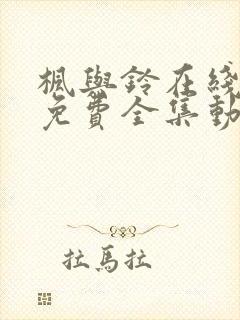 楓與鈴在綫
免費全集動
拉馬拉